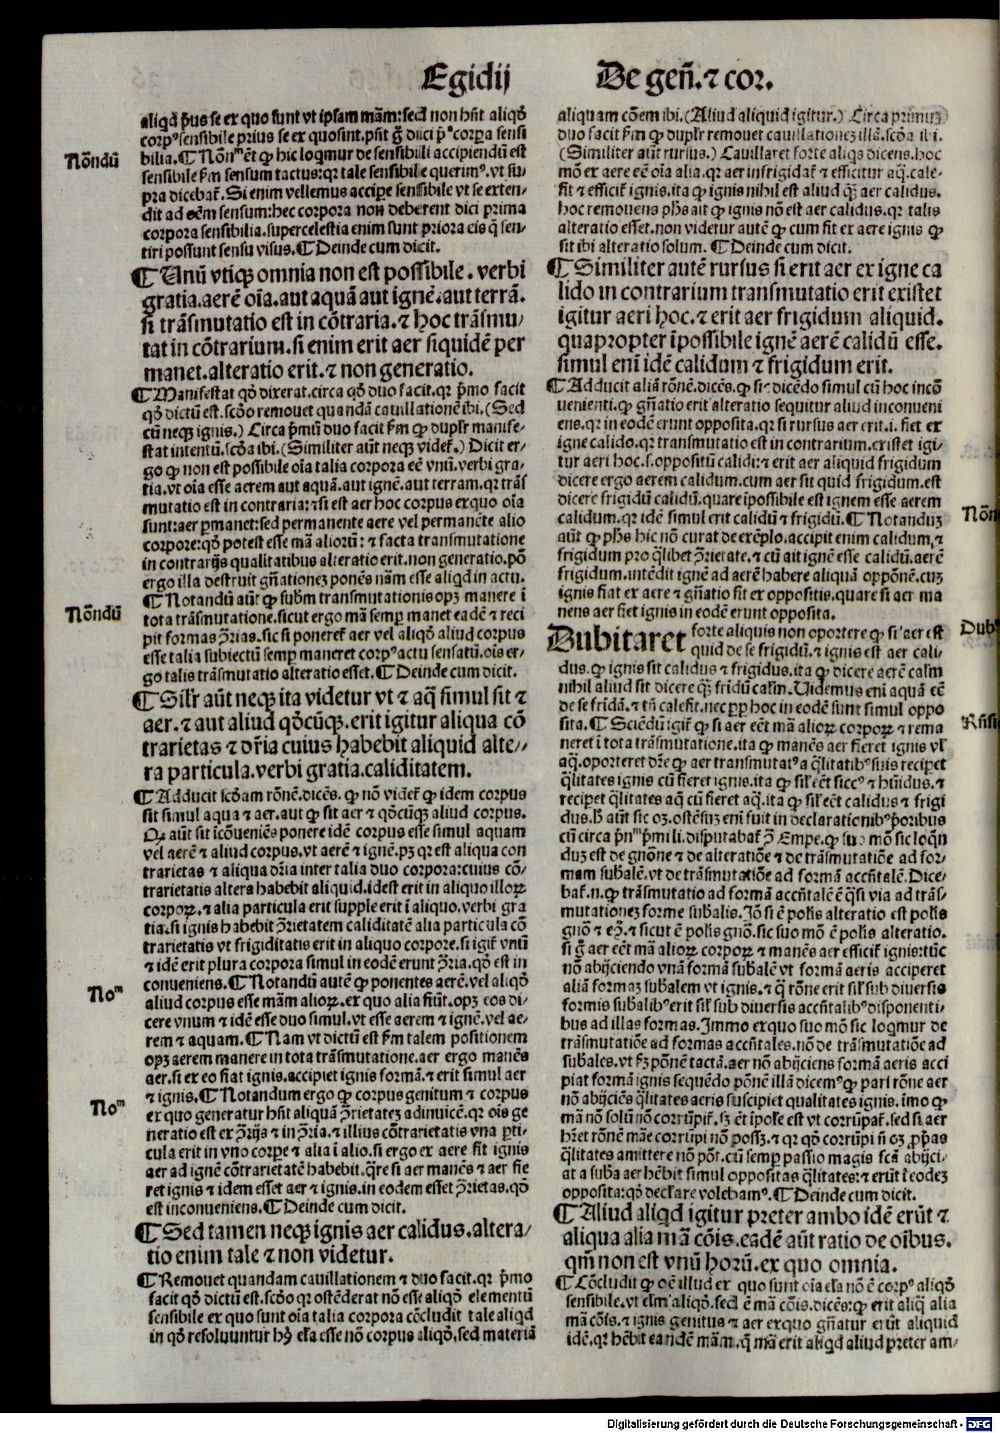 Egidij De geñ. ⁊ cor.
aliqd p̃us se ex quo sunt vt ipsam mãm: sed non hñt aliqð
corpꝰ sensibile prius se ex quo sunt. pñt g̃ dici pᵃ corpꝑa sensi
Nõndũ
bilia. ¶ Nõnᵐ ẽt ꝙ hic loqmur de sensibili accipiendũ est
sensibile ẜm sensum tactus: qꝛ tale sensibile querimꝰ. vt su/
pra dicebat̃. Si enim vellemus accipe sensibile vt se exten/
dit ad oẽm sensum: hec corpora non deberent dici prima
corpora sensibilia. supercelestia enim sunt priora eis q̃ sen/
tiri possunt sensu visus. ¶ Deinde cum dicit.
¶ Unũ vtiqꝫ omnia non est possibile. verbi
gratia. aerẽ oĩa. aut aquã aut ignẽ. aut terrã.
si trãsmutatio est in cõtraria. ⁊ hoc trãsmu/
tat in cõtrarium. si enim erit aer siquidẽ per
manet. alteratio erit. ⁊ non generatio.
¶ Manifestat qð dixerat. circa qð duo facit. qꝛ p̃mo facit
qð dictũ est. scðo remouet quandã cauillationẽ ibi. (Sed
cũ neqꝫ ignis.) Circa p̃mũ duo facit ẜm ꝙ duplr̃ manife/
stat intentũ. scða ibi. (Similiter aũt neqꝫ videt̃.) Dicit er/
go ꝙ non est possibile oĩa talia corpora eẽ vnũ. verbi gra/
tia. vt oĩa esse aerem aut aquã. aut ignẽ. aut terram. qꝛ trãs
mutatio est in contraria: ⁊ si est aer hoc corpus ex quo oĩa
sunt: aer ꝑmanet: sed permanente aere vel permanẽte alio
corpore: qð potest esse mã alioꝝ: ⁊ facta transmutatione
in contrarijs qualitatibus alteratio erit. non generatio. põ
ergo illa destruit gñationeꝫ ponẽs nãm esse aliqd in actu.
Nõndũ
¶ Notandũ aũt ꝙ subm̃ transmutationis opꝫ manere ĩ
tota trãsmutatione. sicut ergo mã semꝑ manet eadẽ ⁊ reci
pit formas ꝯ̃rias. sic si poneret̃ aer vel aliqð aliud corpus
esse talia subiectũ semꝑ maneret corpꝰ actu sensatũ. ois er/
go talis trãsmutatio alteratio esset. ¶ Deinde cum dicit.
¶ Silr̃ aũt neqꝫ ita videtur vt ⁊ aq̃ simul sit ⁊
aer. ⁊ aut aliud qðcũqꝫ. erit igitur aliqua cõ
trarietas ⁊ dr̃ia cuius habebit aliquid alte/
ra particula. verbi gratia. caliditatem.
¶ Adducit scðam rõnẽ. dicẽs. ꝙ nõ videt̃ ꝙ idem corpus
sit simul aqua ⁊ aer. aut ꝙ sit aer ⁊ qðcũqꝫ aliud corpus.
Qꝙ aũt sit ĩcõueniẽs ponere idẽ corpus esse simul aquam
vel aerẽ ⁊ aliud corpus. vt aerẽ ⁊ ignẽ. pꝫ qꝛ est aliqua con
trarietas ⁊ aliqua dr̃ia inter talia duo corpora: cuius cõ/
trarietatis altera habebit aliquid. idest erit in aliquo illoꝝ
corpoꝝ. ⁊ alia particula erit supple erit ĩ aliquo. verbi gra
tia. si ignis habebit ꝯ̃rietatem caliditatẽ alia particula cõ
trarietatis vt frigiditatis erit in aliquo corpore. si igit̃ vnũ
⁊ idẽ erit plura corpora simul in eodẽ erunt ꝯ̃ria. qð est in
Noᵐ
conueniens. ¶ Notandũ autẽ ꝙ ponentes aerẽ. vel aliqð
aliud corpus esse mãm alioꝝ. ex quo alia fiũt. opꝫ eos di/
cere vnum ⁊ idẽ esse duo simul. vt esse aerem ⁊ ignẽ. vel ae/
rem ⁊ aquam. ¶ Nam vt dictũ est ẜm talem positionem
opꝫ aerem manere in tota trãsmutatione. aer ergo manẽs
aer. si ex eo fiat ignis. accipiet ignis formã. ⁊ erit simul aer
Noᵐ
⁊ ignis. ¶ Notandum ergo ꝙ corpus genitum ⁊ corpus
ex quo generatur hñt aliquã ꝯ̃rietateꝫ adinuicẽ. qꝛ ois ge
neratio est ex ꝯ̃rijs ⁊ in ꝯ̃ria. ⁊ illius cõtrarietatis vna ꝑti/
cula erit in vno corpe ⁊ alia ĩ alio. si ergo ex aere fit ignis
aer ad ignẽ cõtrarietatẽ habebit. q̃re si aer manẽs ⁊ aer fie
ret ignis ⁊ idem esset aer ⁊ ignis. in eodem esset ꝯ̃rietas. qð
est inconueniens. ¶ Deinde cum dicit.
¶ Sed tamen neqꝫ ignis aer calidus. altera/
tio enim tale ⁊ non videtur.
¶ Remouet quandam cauillationem ⁊ duo facit. qꝛ p̃mo
facit qð dictũ est. scðo qꝛ ostẽderat nõ esse aliqð elementũ
sensibile ex quo sunt oĩa talia corpora cõcludit tale aliqd
in qð resoluuntur hꝫ esa esse nõ corpus aliqð, sed materiã
aliquam cõem ibi. (Aliud aliquid igitur.) Circa primuꝫ
duo facit ẜm ꝙ duplr̃ remouet cauillationeꝫ illã. scða ibi.
(Similiter aũt rursus.) Cauillaret forte aliqs dicens. hoc
mõ ex aere eẽ oĩa alia. qꝛ aer infrigidat̃ ⁊ efficitur aq̃. cale/
fit ⁊ efficit̃ ignis. ita ꝙ ignis nihil est aliud q̃ꝫ aer calidus.
hoc remouens phs ait ꝙ ignis nõ est aer calidus. qꝛ talis
alteratio esset. non videtur autẽ ꝙ cum fit ex aere ignis ꝙ
sit ibi alteratio solum. ¶ Deinde cum dicit.
¶ Similiter autẽ rursus si erit aer ex igne ca
lido in contrarium transmutatio erit existet
igitur aeri hoc. ⁊ erit aer frigidum aliquid.
quapropter ĩpossibile ignẽ aerẽ calidũ esse.
simul eni idẽ calidum ⁊ frigidum erit.
¶ Adducit aliã rõnẽ. dicẽs. ꝙ sic dicẽdo simul cũ hoc incõ
uenienti. ꝙ gñatio erit alteratio sequitur aliud inconueni
ens. qꝛ in eodẽ erunt opposita. qꝛ si rursus aer erit. i. fiet ex
igne calido. qꝛ transmutatio est in contrarium. existet igi/
tur aeri hoc. s. oppositũ calidi: ⁊ erit aer aliquid frigidum
dicere ergo aerem calidum. cum aer sit quid frigidum. est
dicere frigidũ calidũ. quare ĩpossibile est ignem esse aerem
Nõn
calidum. qꝛ idẽ simul erit calidũ ⁊ frigidũ. ¶ Notanduꝫ
aũt ꝙ phs hic nõ curat de exẽplo. accipit enim calidum. ⁊
frigidum pro q̃libet ꝯ̃rietate. ⁊ cũ ait ignẽ esse calidũ. aerẽ
frigidum. intẽdit ignẽ ad aerẽ habere aliquã oppõnẽ. cuꝫ
ignis fiat ex aere ⁊ gñatio fit ex oppositis. quare si aer ma
nens aer fiet ignis in eodẽ erunt opposita.
Dub
Dubitaret forte aliquis non oportere ꝙ si aer est
quid de se frigidũ. ⁊ ignis est aer cali/
dus. ꝙ ignis sit calidus ⁊ frigidus. ita ꝙ dicere aerẽ calm̃
nihil aliud sit dicere q̃ꝫ fridũ calm̃. Uidemus eni aquã eẽ
de se fridã. ⁊ tñ calefit. nec ꝓp hoc in eodẽ sunt simul oppo
Rñsi
sita. ¶ Sciẽdũ igit̃ ꝙ si aer eẽt mã alioꝝ corpoꝝ ⁊ rema
neret ĩ tota trãsmutatione. ita ꝙ manẽs aer fieret ignis vl̃
aq̃. oporteret dr̃e ꝙ aer transmutatꝰ a q̃litatibꝰ suis reciꝑet
q̃litates ignis cũ fieret ignis. ita ꝙ sil̃ eẽt siccꝰ ⁊ hũidus. ⁊
reciꝑet q̃litates aq̃ cũ fieret aq̃. ita ꝙ sil̃ eẽt calidus ⁊ frigi
dus. ẜ aũt sic oꝫ. ostẽsuꝫ eni fuit in declarationibꝰ p̃oribus
cũ circa p̃nᵐ p̃mi li. disputabat̃ ꝯ̃ Empe. ꝙ suo mõ sic loqñ
duꝫ est de gnõne ⁊ de alteratiõe ⁊ de trãsmutatiõe ad for/
mam subalẽ. vt de trãsmutatiõe ad formã accñtalẽ. Dice/
bat̃. n. ꝙ trãsmutatio ad formã accñtalẽ ẽ q̃si via ad trãs/
mutationeꝫ forme subalis. Jõ si ẽ polis alteratio est polis
gnõ ⁊ eꝯ̃. ⁊ sicut ẽ polis gnõ. sic suo mõ ẽ polis alteratio.
si g̃ aer eẽt mã alioꝝ corpoꝝ ⁊ manẽs aer efficit̃ ignis: tũc
nõ abijciendo vnã formã subalẽ vt formã aeris acciperet
aliã formaꝫ subalem vt ignis. ⁊ q̃ rõne erit sil̃ sub diuersis
formis subalibꝰ erit sil̃ sub diuersis accñtalibꝰ disponenti/
bus ad illas formas. Jmmo ex quo suo mõ sic loqmur de
trãsmutatiõe ad formas accñtales. nõ de trãsmutatiõe ad
subales. vt ẜꝫ ponẽ tactã. aer nõ abijciens formã aeris acci
piat formã ignis sequẽdo põnẽ illã dicemꝰ ꝙ pari rõne aer
nõ abijciẽs q̃litates aeris suscipiet qualitates ignis. ĩmo ꝙ
mã nõ solũ nõ corrũpit̃. sꝫ ẽt ĩpole est vt corrũpat̃. sed si aer
hẽret rõnẽ mãe corrũpi nõ possꝫ. ⁊ qꝛ qð corrũpi ñ oꝫ ꝓp̃as
q̃litates amittere nõ põt. cũ semꝑ passio magis fcã abijci/
at a suba aer hẽbit simul oppositas q̃litates: ⁊ erũt ĩ eodeꝫ
opposita: qð declare volebamꝰ. ¶ Deinde cum dicit.
¶ Aliud aliqd igitur preter ambo idẽ erũt ⁊
aliqua alia mã cõis. eadẽ aũt ratio de oĩbus.
qm̃ non est vnũ horũ. ex quo omnia.
¶ Cõcludit ꝙ oẽ illud ex quo sunt oĩa esa nõ ẽ corpꝰ aliqð
sensibile. vt elm̃ aliqð. sed ẽ mã cõis. dicẽs: ꝙ erit aliq̃ alia
mã cõis. ⁊ ignis genitus ⁊ aer ex quo gñatur erũt aliquid
idẽ. qꝛ hẽbit eandẽ mãm. q̃ mã erit aliqd aliud preter am/
Digitalisierung gefördert durch die Deutsche Forschungsgemeinschaft - DFG